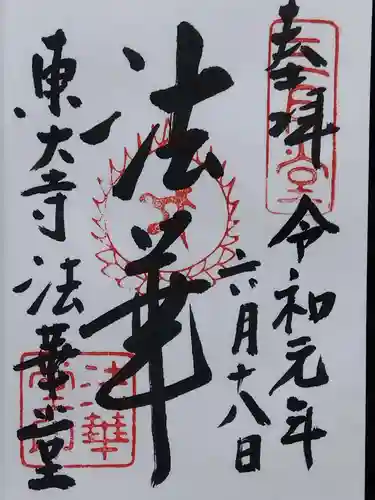 奉拝
三月堂
令和元年
六月十八日
法華
東大寺法華堂
法華
堂印